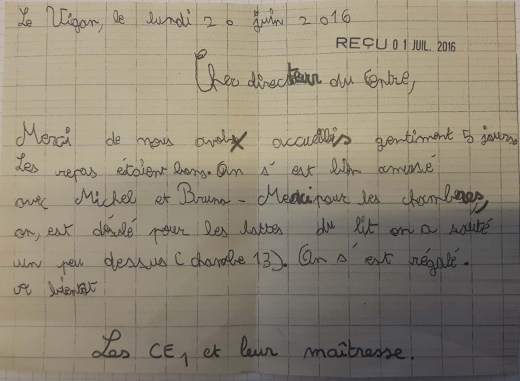 Le Vigan, le lundi 20 juin 2016
REÇU 01 JUIL. 2016
Cher directeur du Centre,
Merci de nous avoir accueillis gentiment 5 jours.
Les repas étaient bons. On s'est bien amusé
avec Michel et Bruno - Merci pour les chambres,
on, est désolé pour les lattes du lit on a sauté
un peu dessus (chambe 13). On s'est régalé.
A bientot
Les CE1 et leur maîtresse.